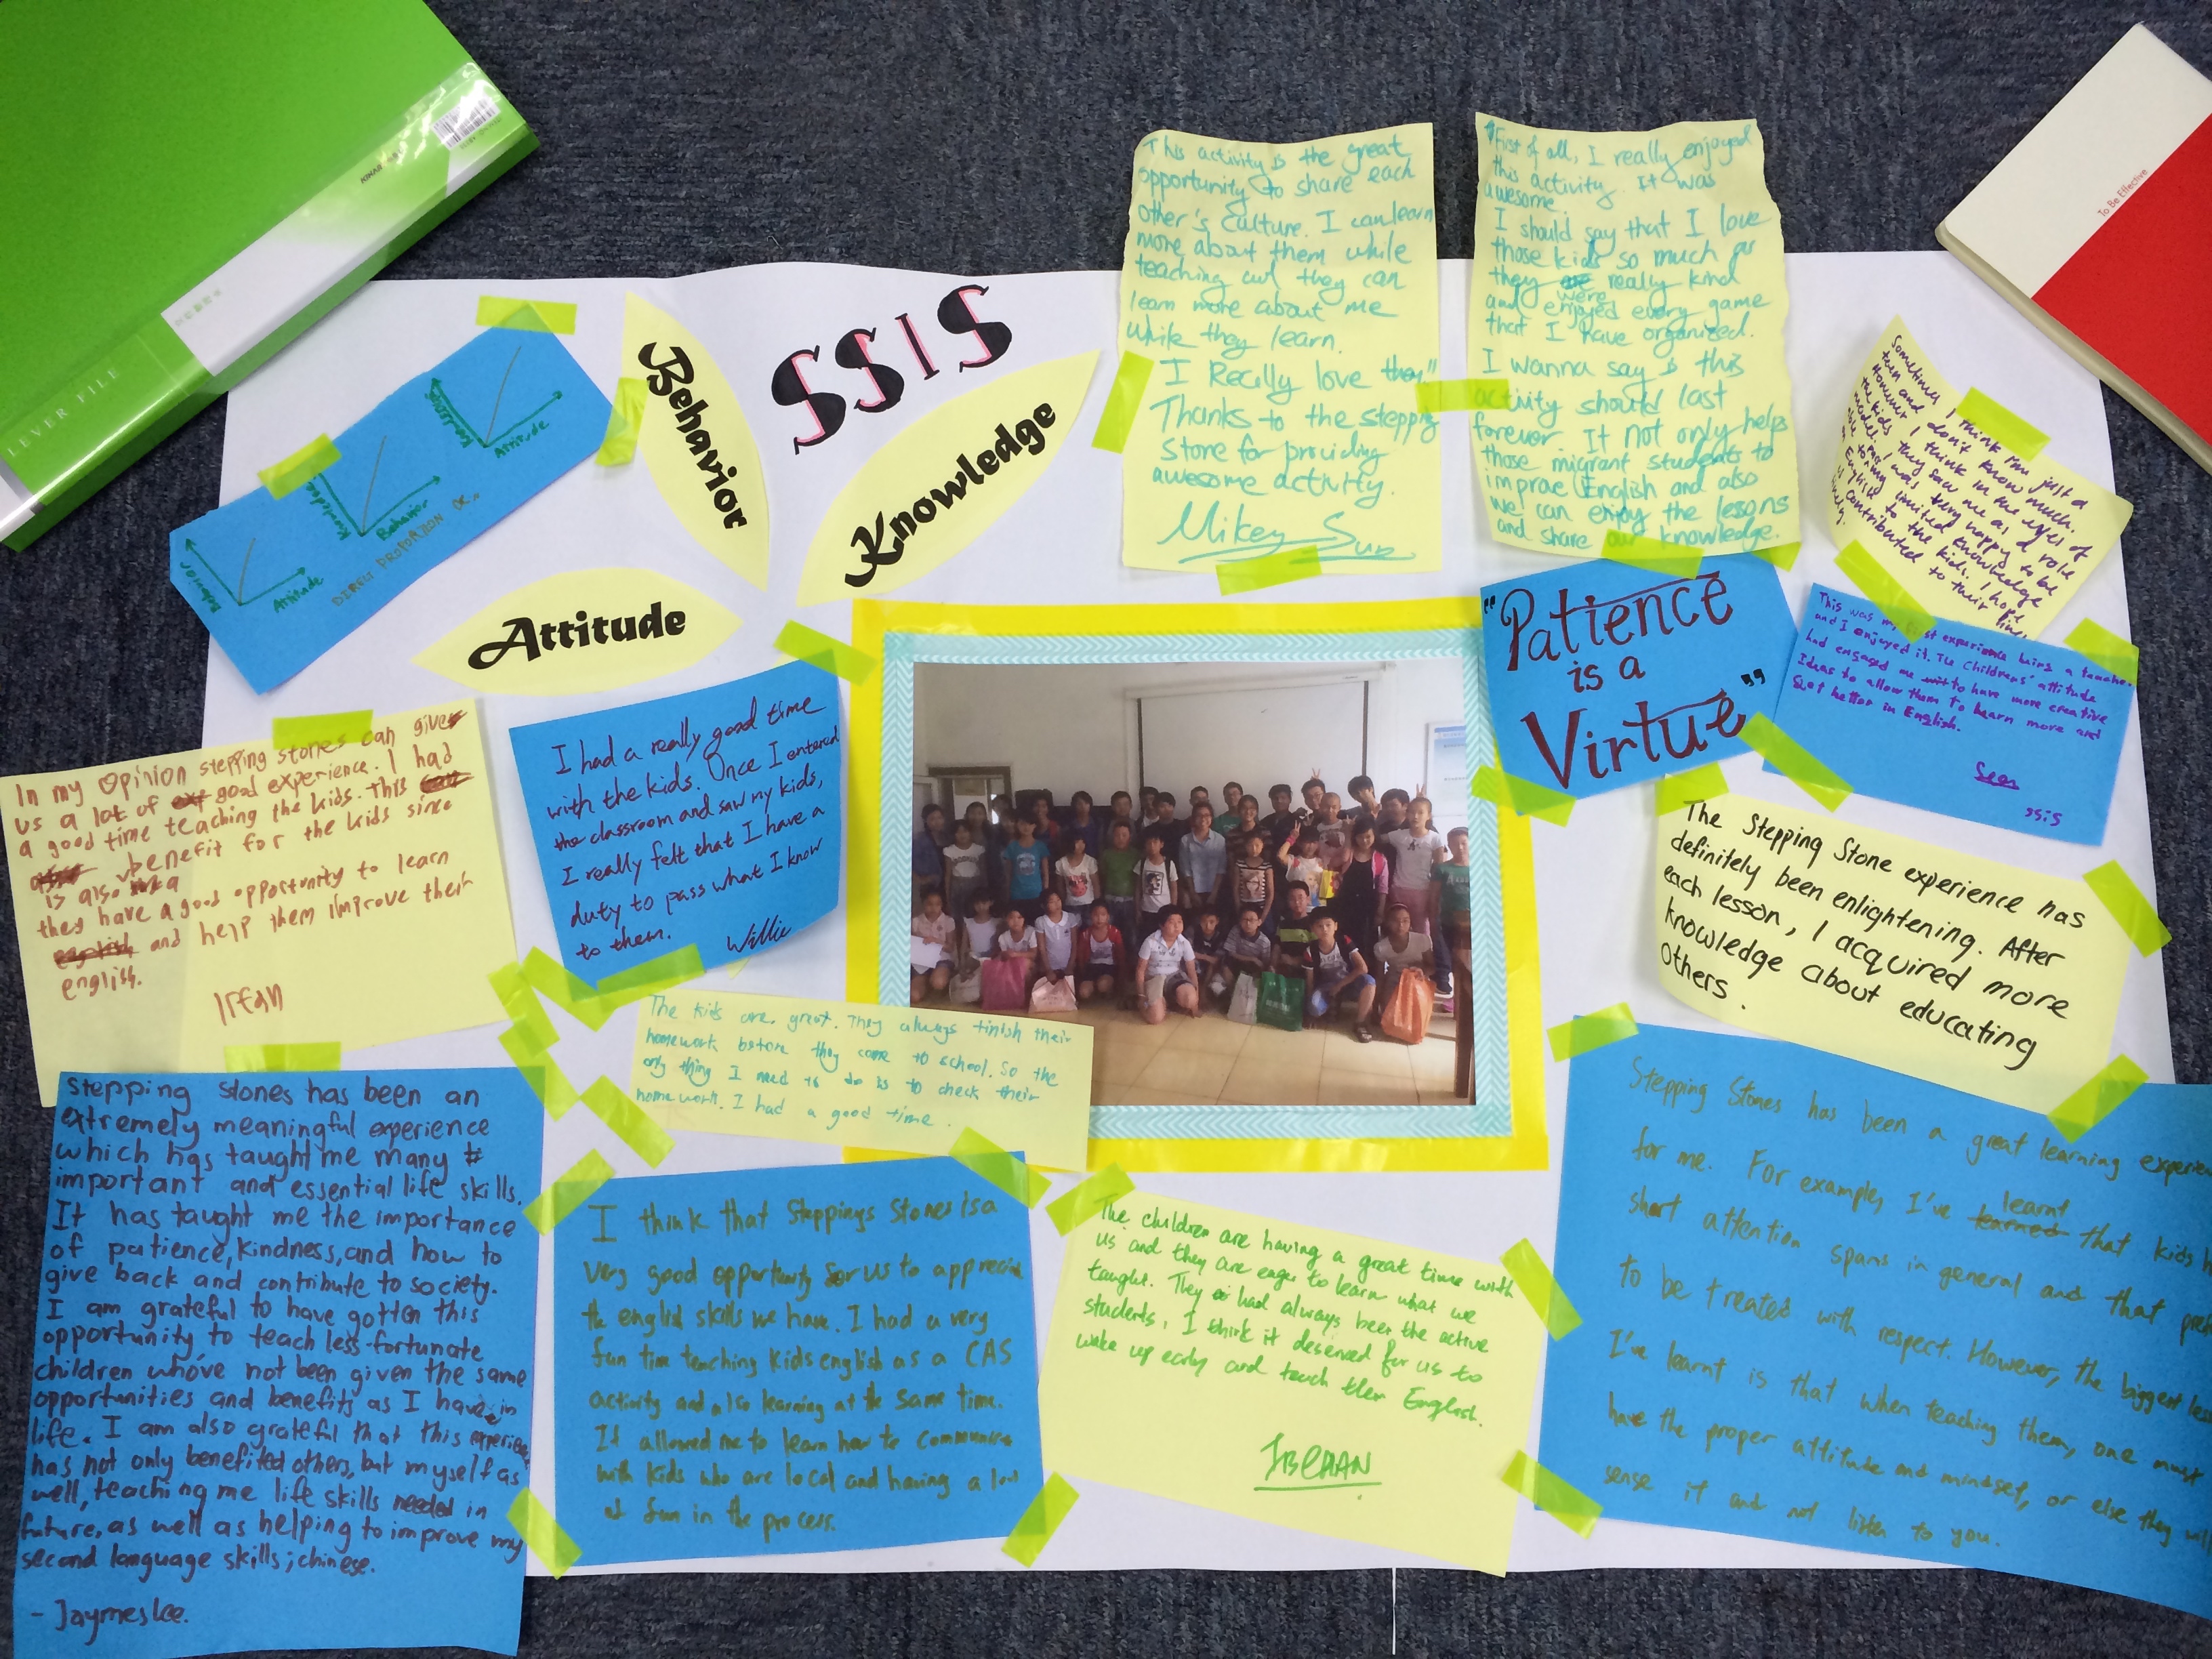 LEVER FILE
KINARY
To Be Effective
SSIS
Behavior
Knowledge
Attitude
Knowledge
Attitude
Knowledge
Behavior
Behavior
Attitude
DIRECT PROPORTION OK..
This activity is the great
opportunity to share each
other's culture. I can learn
more about them while
teaching and they can
learn more about me
while they learn.
I Really love they"
Thanks to the stepping
stone for providing
awesome activity.
Mikey Sun
First of all, I really enjoyed
this activity. It was
awesome.
I should say that I love
those kids so much as
they were really kind
and enjoyed every game
that I have organized.
I wanna say is this
activity should last
forever. It not only helps
those migrant students to
improve English and also
we can enjoy the lessons
and share our knowledge.
Sometimes I think I'm just a
teen and I don't know much.
However I think in the eyes of
the kids, they saw me as a role
model. I was very happy to be
able to pass my limited knowledge
on English to the kids. I hope
I contributed to their lives.
"Patience
is a
Virtue"
This was my first experience being a teacher
and I enjoyed it. The Childrens' attitude
had engaged me to have more creative
Ideas to allow them to learn more and
get better in English.
Sean
SSIS
In my opinion stepping stones can give
us a lot of good experience. I had
a good time teaching the kids. This
is also a benefit for the kids since
they have a good opportunity to learn
english and help them improve their
english.
Irfan
I had a really good time
with the kids. Once I entered
the classroom and saw my kids,
I really felt that I have a
duty to pass what I know
to them.
Willie
The Stepping Stone experience has
definitely been enlightening. After
each lesson, I acquired more
knowledge about educating
others.
The kids are great. They always finish their
homework before they come to school. So the
only thing I need to do is to check their
homework. I had a good time.
Stepping Stones has been an
extremely meaningful experience
which has taught me many
important and essential life skills.
It has taught me the importance
of patience, kindness, and how to
give back and contribute to society.
I am grateful to have gotten this
opportunity to teach less-fortunate
children who've not been given the same
opportunities and benefits as I have in
life. I am also grateful that this experience
has not only benefited others, but myself as
well, teaching me life skills needed in
future, as well as helping to improve my
second language skills; chinese.
- Jaymeslee.
I think that Steppings Stones is a
very good opportunity for us to appreciate
the english skills we have. I had a very
fun time teaching kids english as a CAS
activity and also learning at the same time.
It allowed me to learn how to communicate
with kids who are local and having a lot
of fun in the process.
The children are having a great time with
us and they are eager to learn what we
taught. They had always been the active
students, I think it deserved for us to
wake up early and teach them English.
Stepping Stones has been a great learning
for me. For example, I've learnt that kids
short attention spans in general and that
to be treated with respect. However, the biggest
I've learnt is that when teaching them, one must
have the proper attitude and mindset, or else they
sense it and not listen to you.